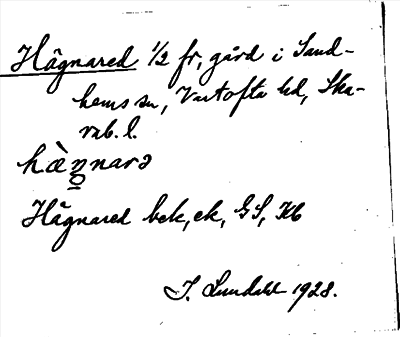 Hägnared 1/2 fr, gård i Sand-
hems sn, Vartofta hd, Ska-
rab. l.
hæ̀n̥narə
Hägnared bek, ek, GS, Kb
I. Lundahl 1928.